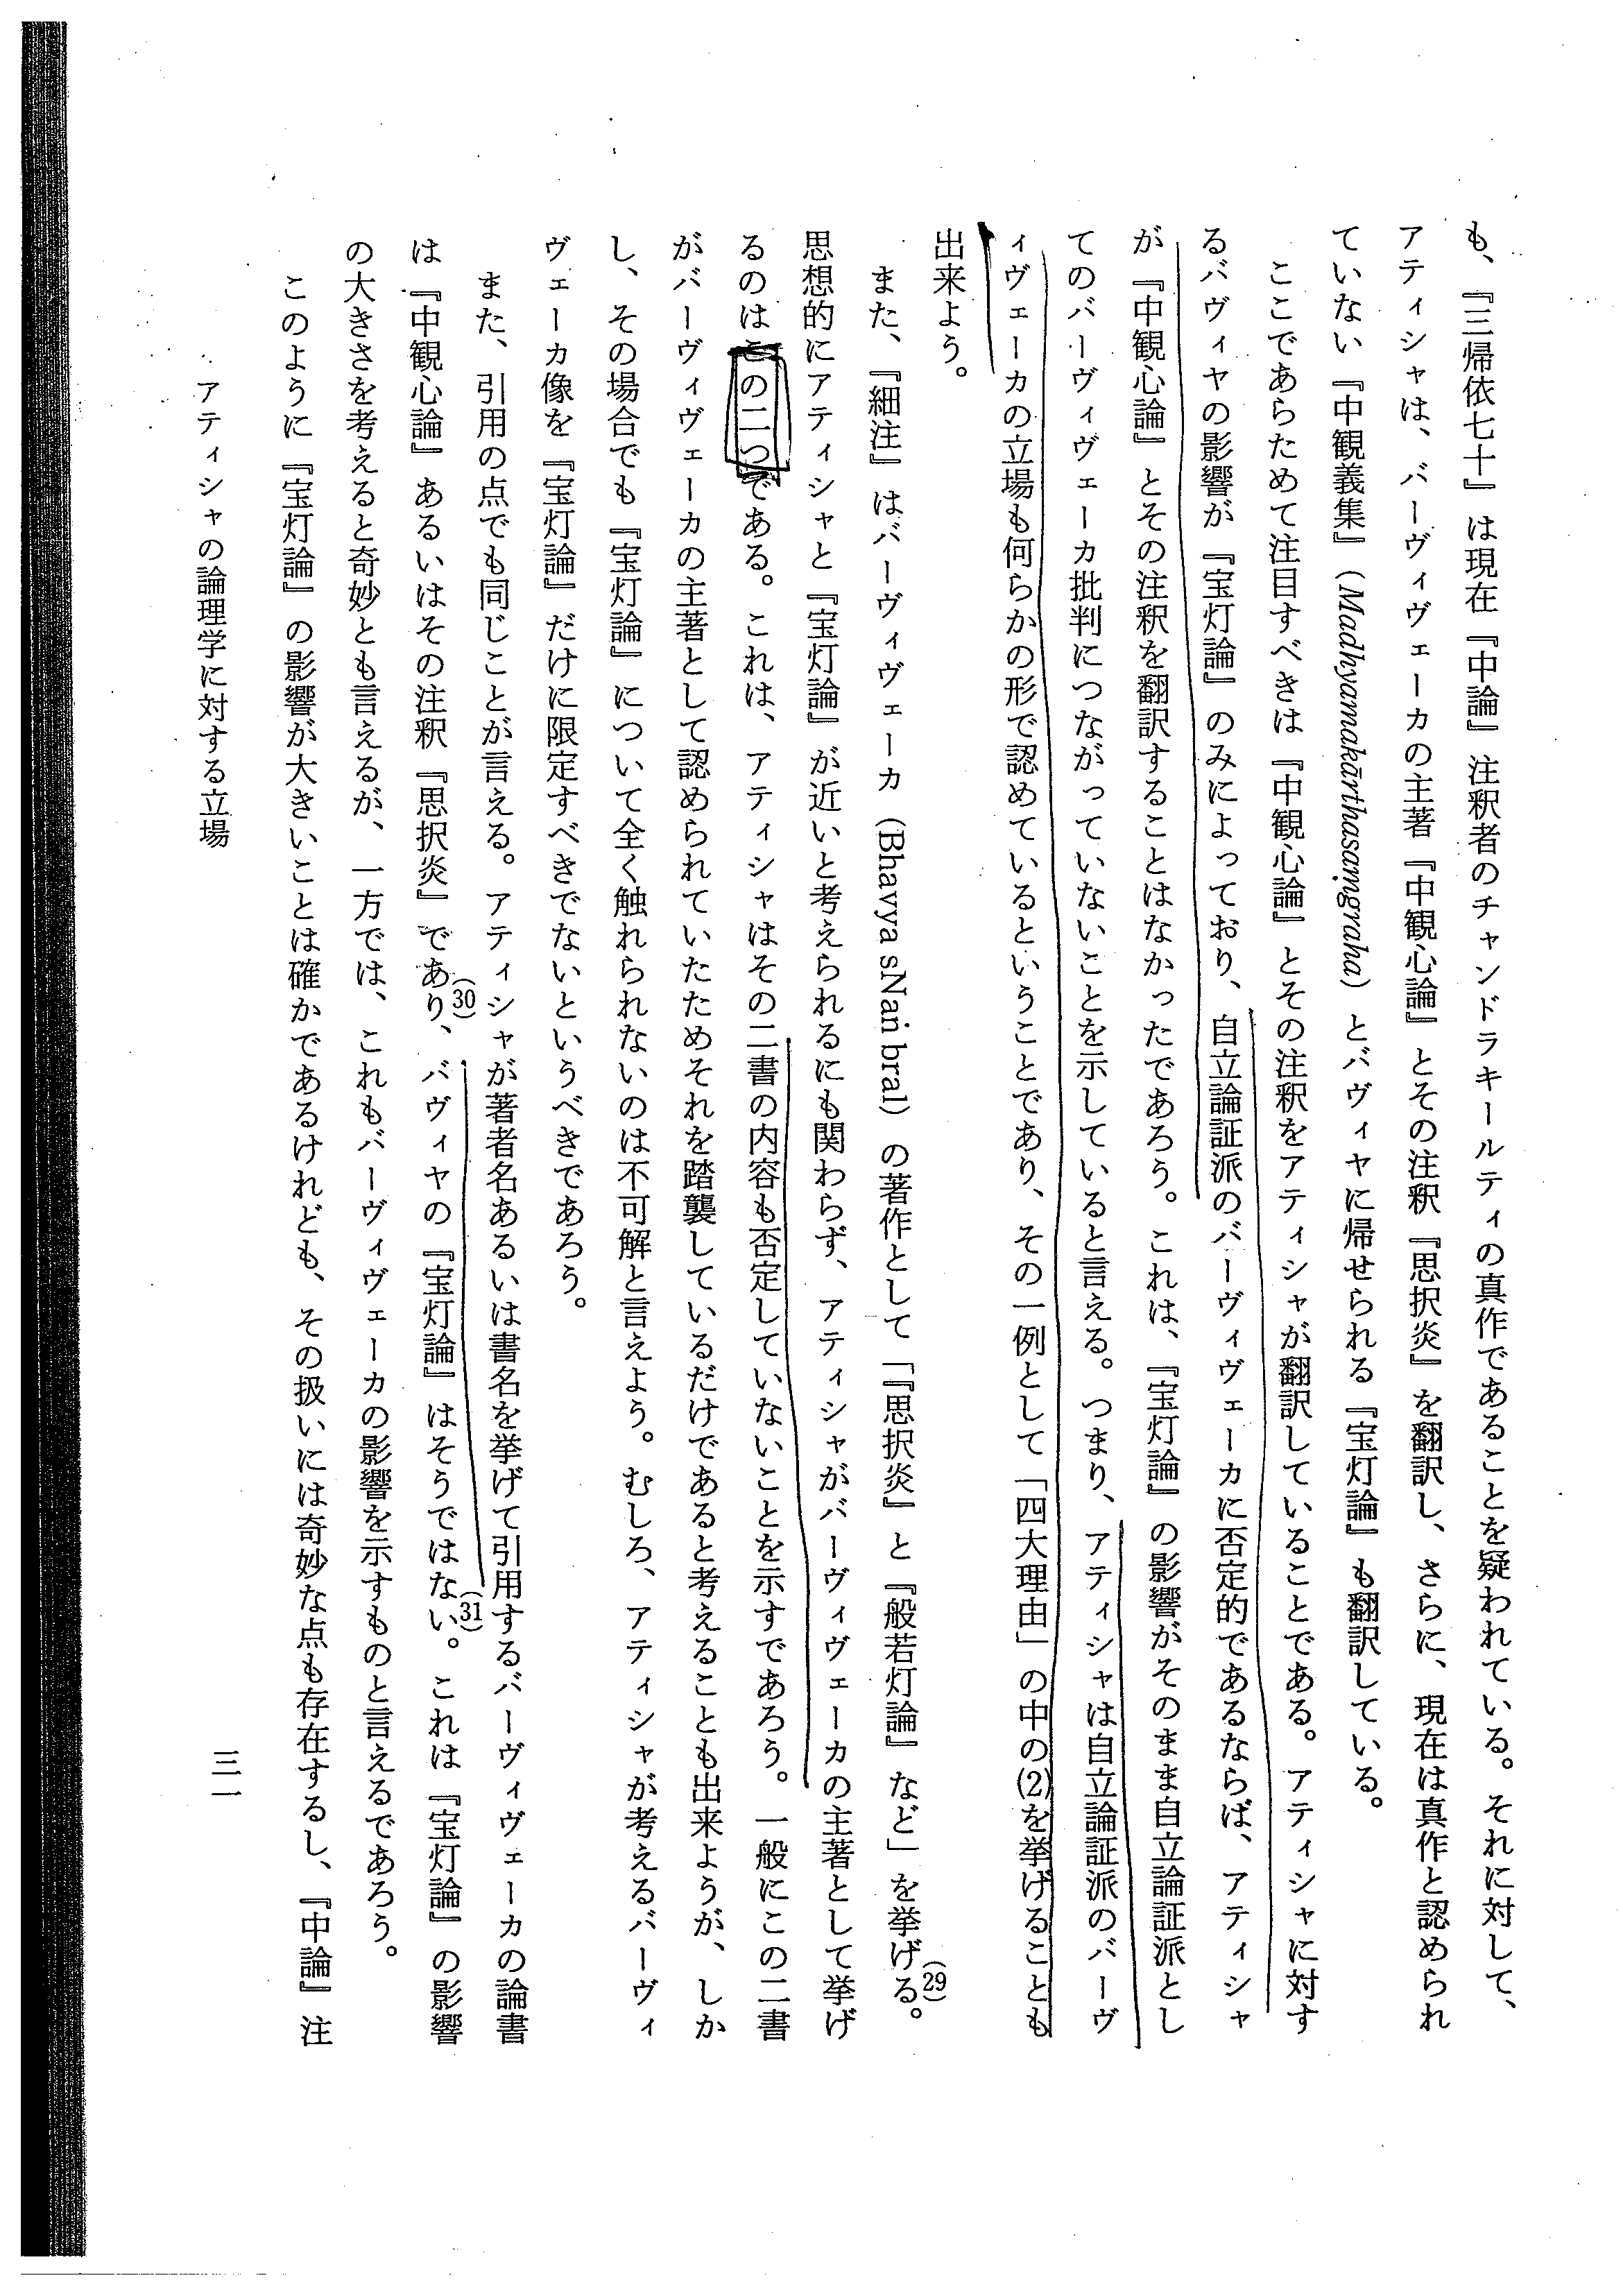 も、『三帰依七十』は現在『中論』注釈者のチャンドラキールティの真作であることを疑われている。それに対して、
アティシャは、バーヴィヴェーカの主著『中観心論』とその注釈『思択炎』を翻訳し、さらに、現在は真作と認められ
ていない『中観義集』（Madhyamakārthasaṃgraha）とバヴィヤに帰せられる『宝灯論』も翻訳している。
ここであらためて注目すべきは『中観心論』とその注釈をアティシャが翻訳していることである。アティシャに対す
るバヴィヤの影響が『宝灯論』のみによっており、自立論証派のバーヴィヴェーカに否定的であるならば、アティシャ
が『中観心論』とその注釈を翻訳することはなかったであろう。これは、『宝灯論』の影響がそのまま自立論証派とし
てのバーヴィヴェーカ批判につながっていないことを示していると言える。つまり、アティシャは自立論証派のバーヴ
ィヴェーカの立場も何らかの形で認めているということであり、その一例として「四大理由」の中の(2)を挙げることも
出来よう。
また、『細注』はバーヴィヴェーカ（Bhavya sNaṅ bral）の著作として「『思択炎』と『般若灯論』など」を挙げる。(29)
思想的にアティシャと『宝灯論』が近いと考えられるにも関わらず、アティシャがバーヴィヴェーカの主著として挙げ
るのはこの二つである。これは、アティシャはその二書の内容も否定していないことを示すであろう。一般にこの二書
がバーヴィヴェーカの主著として認められていたためそれを踏襲しているだけであると考えることも出来ようが、しか
し、その場合でも『宝灯論』について全く触れられないのは不可解と言えよう。むしろ、アティシャが考えるバーヴィ
ヴェーカ像を『宝灯論』だけに限定すべきでないというべきであろう。
また、引用の点でも同じことが言える。アティシャが著者名あるいは書名を挙げて引用するバーヴィヴェーカの論書
は『中観心論』あるいはその注釈『思択炎』であり、(30)バヴィヤの『宝灯論』はそうではない。(31)これは『宝灯論』の影響
の大きさを考えると奇妙とも言えるが、一方では、これもバーヴィヴェーカの影響を示すものと言えるであろう。
このように『宝灯論』の影響が大きいことは確かであるけれども、その扱いには奇妙な点も存在するし、『中論』注
アティシャの論理学に対する立場
三一